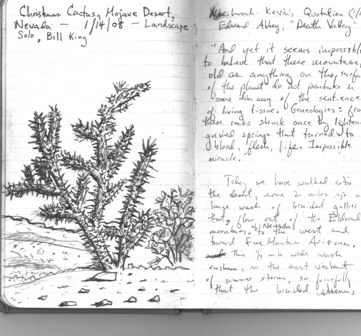 Christmas Cactus, Mojave Desert,
Nevada - 1/14/08 - Landscape
Solo, Bill King
Kevin's Quotation
Edward Abbey, "Death Valley"
"And yet it seems impossible
to believe that these mountains,
old as anything on the surface
of the planet do not partake in
some dim way of the sentience
of living tissue. Geneologies: from
these rocks struck once by lightning
gushed springs that turned to
blood, flesh, life. Impossible
miracle.
Today we have walked into
the desert, some 2 miles up a
long wash of braided gullies
that flow out of the Eldorado
mountains of Nevada to the west and
toward Arizona.
The ½ mile wide wash
in the most violent
of summer storms, so forcefully
that the braided streams